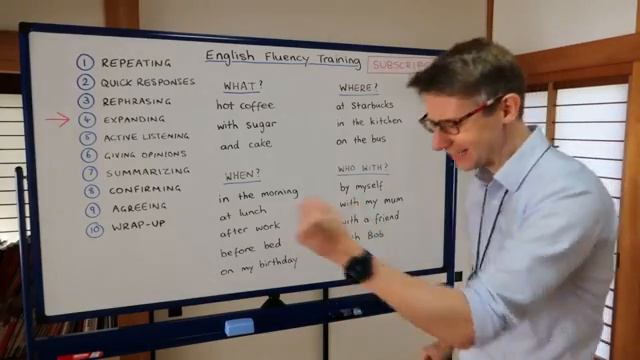 English Fluency Training
SUBSCRIBE
1 REPEATING
2 QUICK RESPONSES
3 REPHRASING
→ 4 EXPANDING
5 ACTIVE LISTENING
6 GIVING OPINIONS
7 SUMMARIZING
8 CONFIRMING
9 AGREEING
10 WRAP-UP
WHAT?
hot coffee
with sugar
and cake
WHEN?
in the morning
at lunch
after work
before bed
on my birthday
WHERE?
at Starbucks
in the kitchen
on the bus
WHO WITH?
by myself
with my mum
with a friend
with Bob